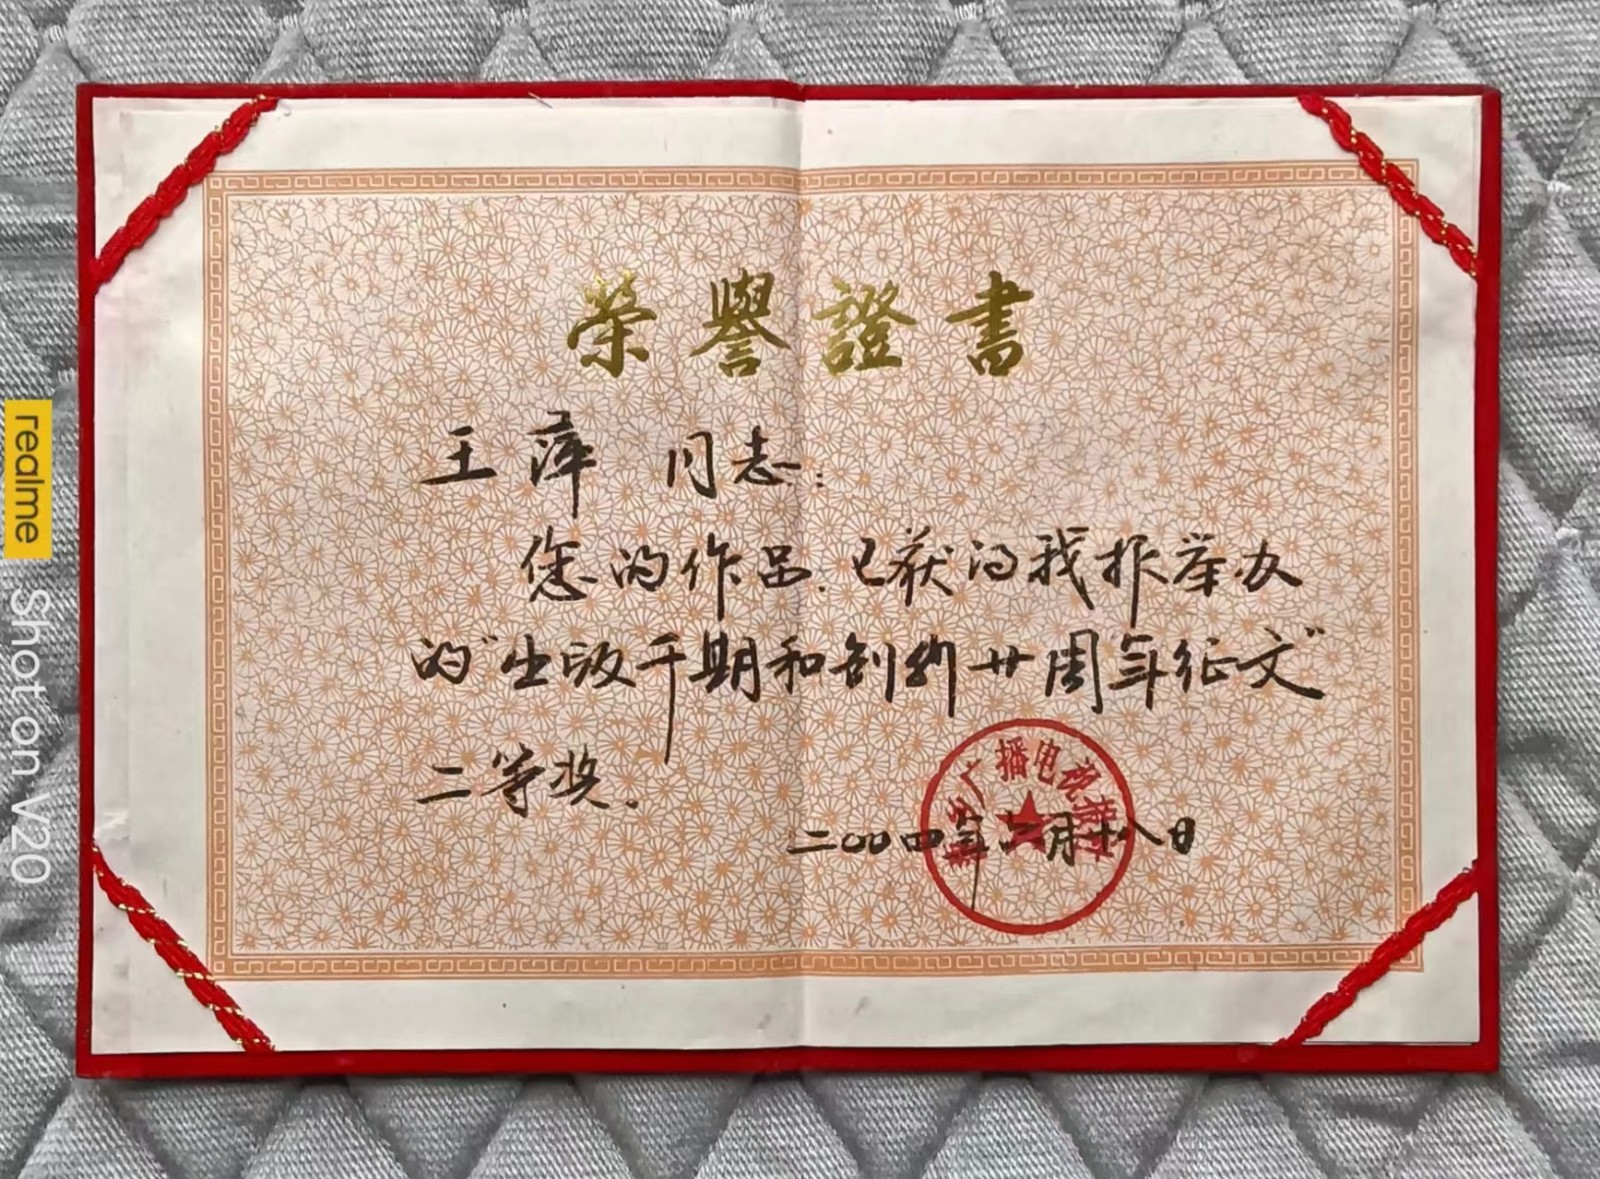 榮譽證書
王萍 同志：
您的作品.已获的我报举办
的“出版千期和创刊廿周年征文”
二等奖.
广播电视
二00四年 月十八日
realme
Shot on V20